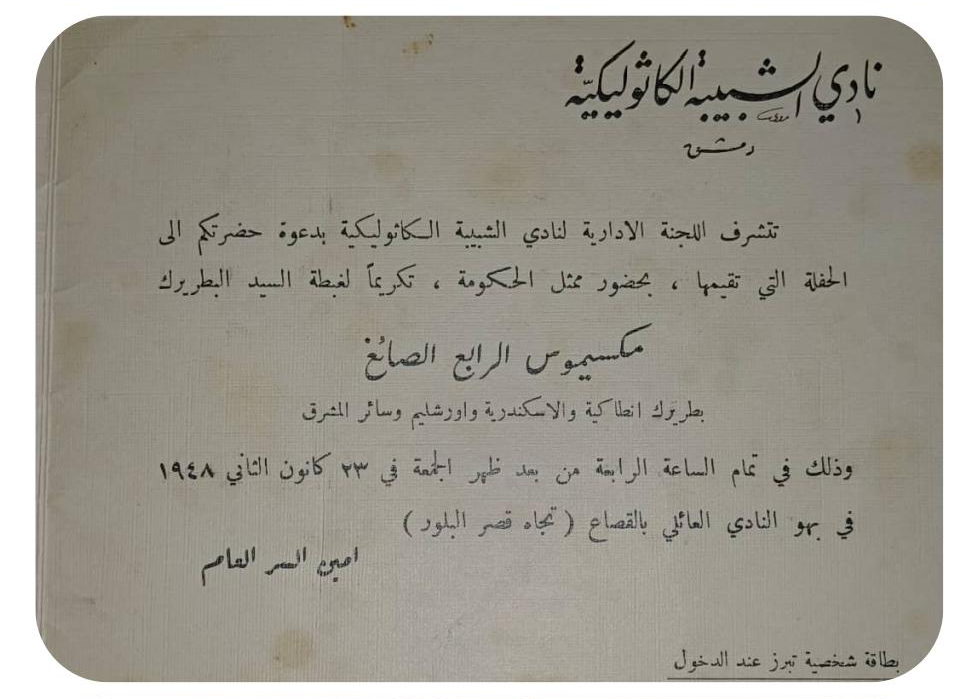 نادي الشبيبة الكاثوليكية
دمشق
تتشرف اللجنة الادارية لنادي الشبيبة الكاثوليكية بدعوة حضرتكم الى
الحفلة التي تقيمها ، بحضور ممثل الحكومة ، تكريماً لغبطة السيد البطريرك
مكسيموس الرابع الصائغ
بطريرك انطاكية والاسكندرية واورشليم وسائر المشرق
وذلك في تمام الساعة الرابعة من بعد ظهر الجمعة في ٢٣ كانون الثاني ١٩٤٨
في بهو النادي العائلي بالقصاع ( تجاه قصر البلور )
امين السر العام
بطاقة شخصية تبرز عند الدخول